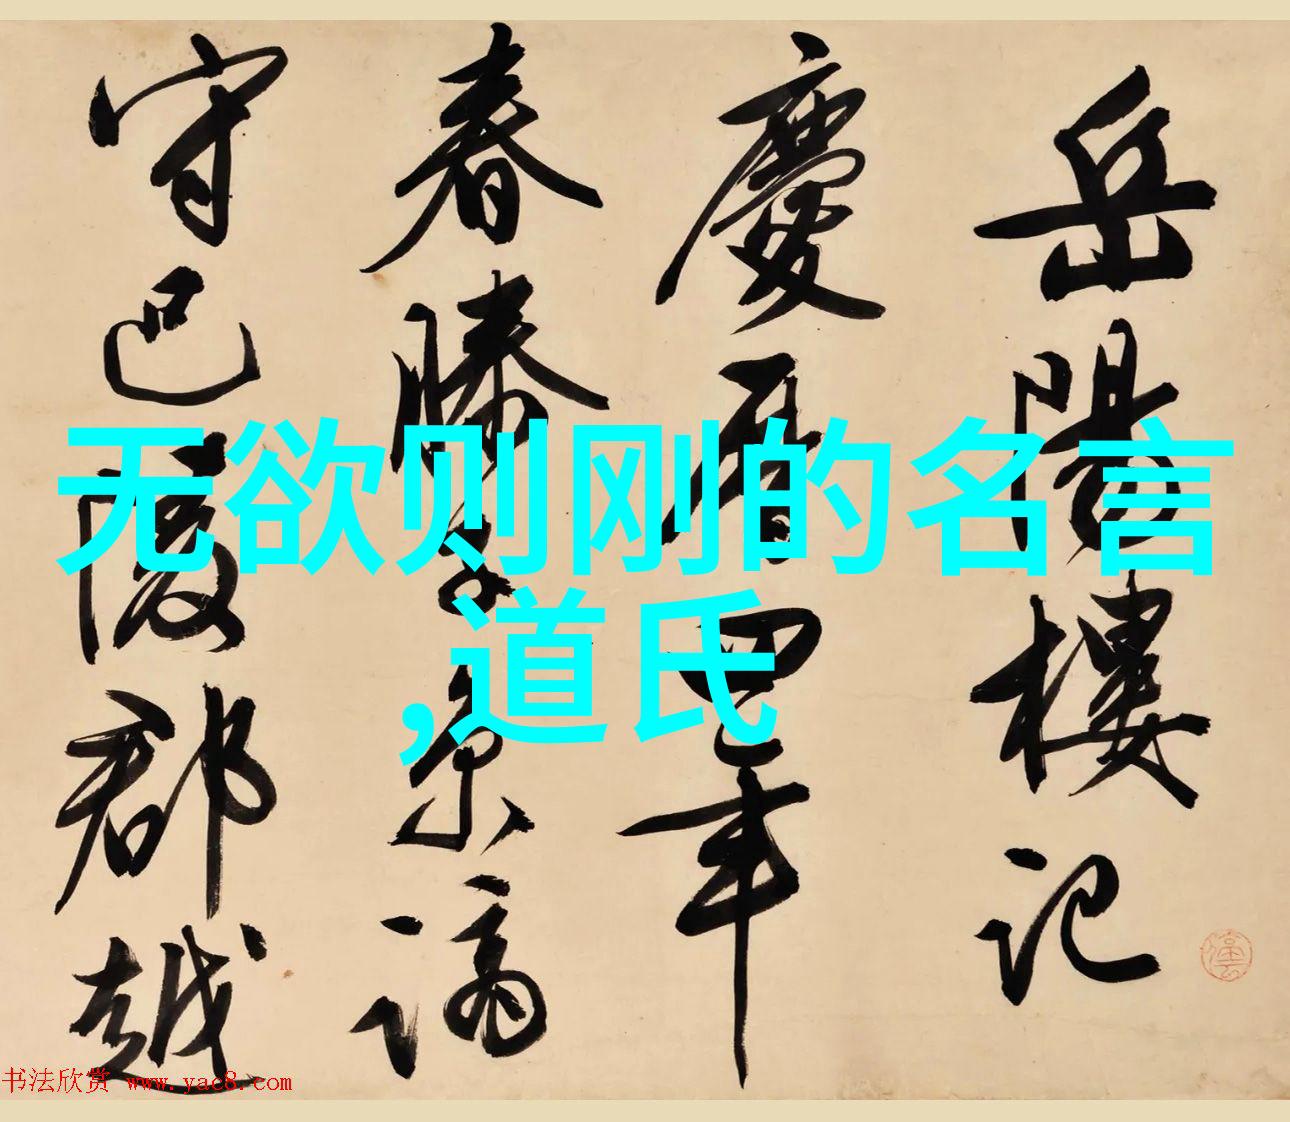 岳陽樓記
慶曆四年
春滕子京謫
守巴陵郡越
无欲则刚的名言
,道氏
书法欣赏 www.yac8.com